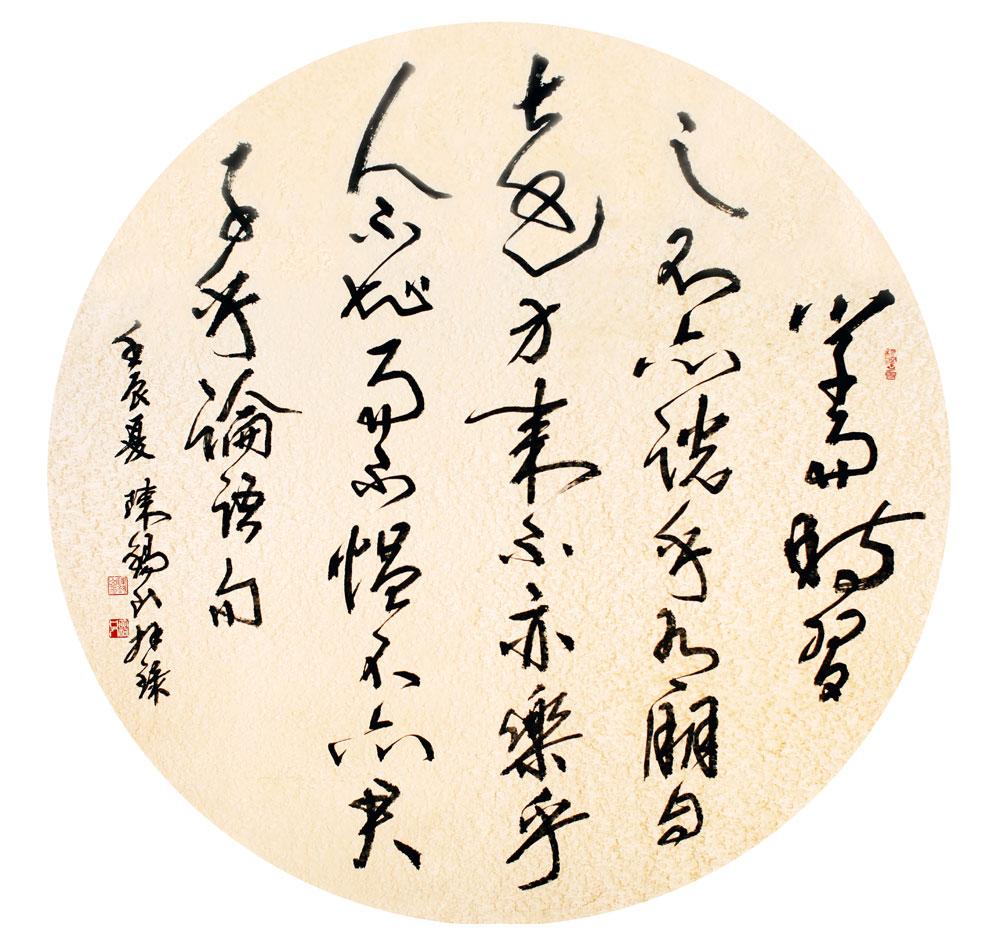 學而時習
之不亦說乎有朋自
遠方來不亦樂乎
人不知而不慍不亦君
子乎論語句
壬辰夏 陳錫山錄